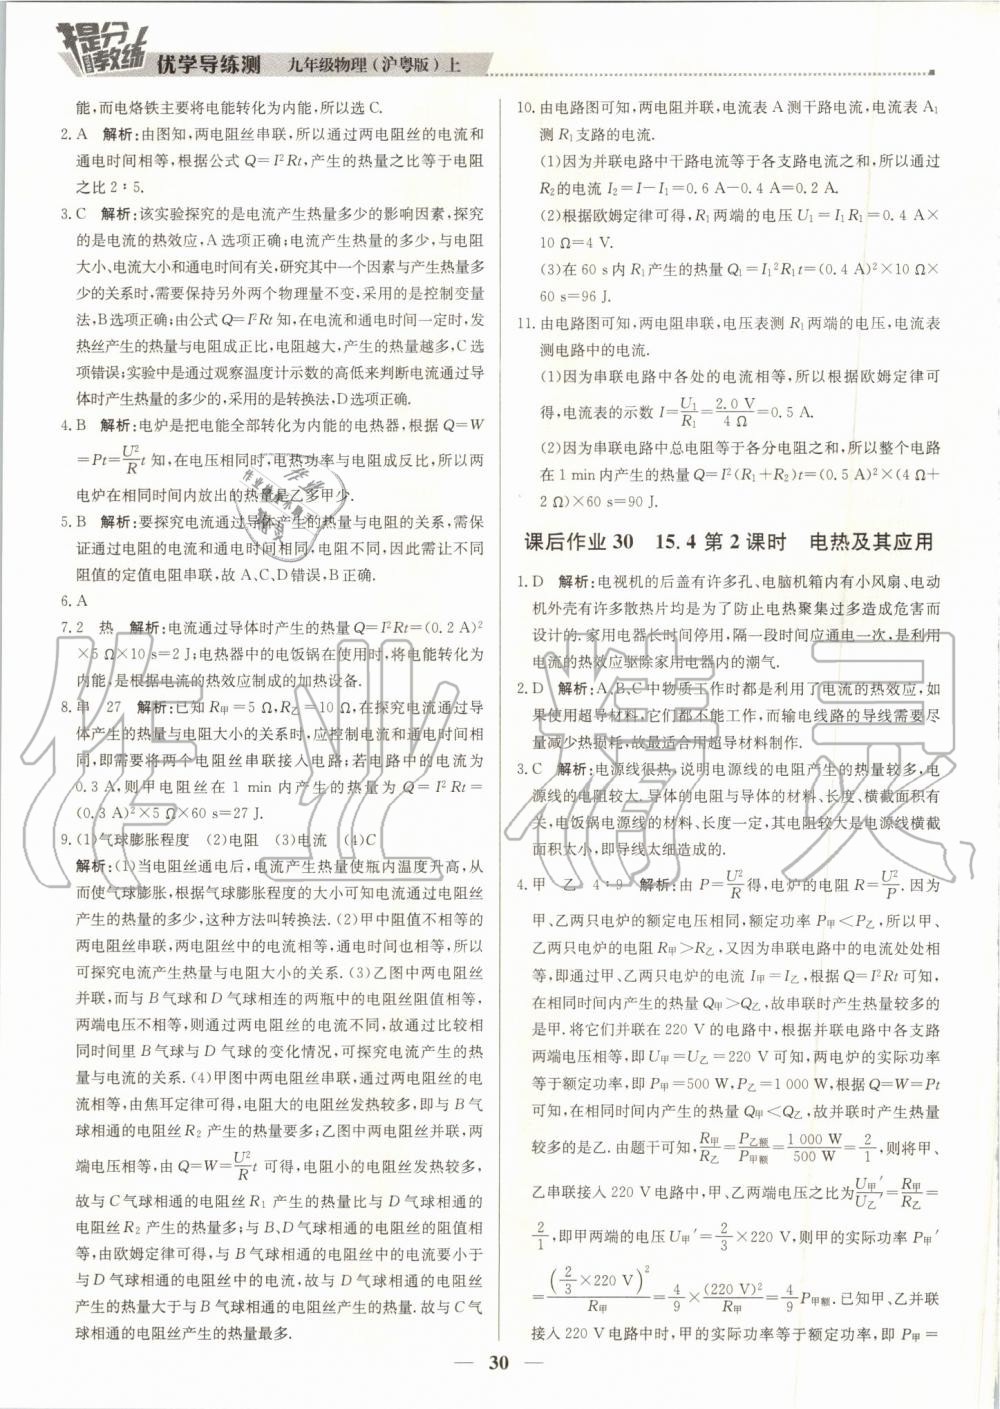 提分教练
优学导练测 九年级物理(沪粤版)上
能,而电烙铁主要将电能转化为内能,所以选C.
2. A 解析:由图知,两电阻丝串联,所以通过两电阻丝的电流和
通电时间相等,根据公式 Q=I²Rt,产生的热量之比等于电阻
之比 2∶5.
3. C 解析:该实验探究的是电流产生热量多少的影响因素,探究
的是电流的热效应,A选项正确;电流产生热量的多少,与电阻
大小、电流大小和通电时间有关,研究其中一个因素与产生热量多
少的关系时,需要保持另外两个物理量不变,采用的是控制变量
法,B选项正确;由公式 Q=I²Rt 知,在电流和通电时间一定时,发
热丝产生的热量与电阻成正比,电阻越大,产生的热量越多,C选
项错误;实验中是通过观察温度计示数的高低来判断电流通过导
体时产生热量的多少的,采用的是转换法,D选项正确.
4. B 解析:电炉是把电能全部转化为内能的电热器,根据 Q=W
=Pt=U²/R t 知,在电压相同时,电热功率与电阻成反比,所以两
电炉在相同时间内放出的热量是乙多甲少.
5. B 解析:要探究电流通过导体产生的热量与电阻的关系,需保
证通过电阻的电流和通电时间相同,电阻不同,图B中有两个不同
阻值的定值电阻串联,故A、C、D错误,B正确.
6. A
7. 2 热 解析:电流通过导体时产生的热量 Q=I²Rt=(0.2 A)²
×5 Ω×10 s=2 J;电热器中的电饭锅在使用时,将电能转化为
内能,是根据电流的热效应制成的加热设备.
8. 串 27 解析:已知 R甲=5 Ω,R乙=10 Ω,在探究电流通过导
体产生的热量与电阻大小的关系时,应控制电流和通电时间相
同,即需要将两个电阻丝串联接入电路;若电路中的电流为
0.3 A,则甲电阻丝在 1 min 内产生的热量为 Q=I²Rt=
(0.3 A)²×5 Ω×60 s=27 J.
9. (1)气球膨胀程度 (2)电阻 (3)电流 (4)C
解析:(1)当电阻丝通电后,电流产生热量使瓶内温度升高,从
而使气球膨胀,根据气球膨胀程度的大小可知电流通过电阻丝
产生的热量的多少,这种方法叫转换法. (2)甲中阻值不相等的
两电阻丝串联,两电阻丝中的电流相等,通电时间也相等,所以
可探究电流产生热量与电阻大小的关系. (3)乙图中两电阻丝
并联,而与B气球和D气球相连的两瓶中的电阻丝阻值相等,
两端电压不相等,则通过两电阻丝的电流不同,故通过比较相
同时间里B气球与D气球的变化情况,可探究电流产生的热
量与电流的关系. (4)甲图中两电阻丝串联,通过两电阻丝的电
流相等,由焦耳定律可得,电阻大的电阻丝发热较多,即与B气
球相通的电阻丝 R₂ 产生的热量要多;乙图中两电阻丝并联,两
端电压相等,由 Q=W=U²/R t 可得,电阻小的电阻丝发热较多,
故与C气球相通的电阻丝 R₁ 产生的热量比与D气球相通的
电阻丝 R₂ 产生的热量多;与B、D气球相通的电阻丝的阻值相
等,由欧姆定律可得,与B气球相通的电阻丝中的电流要小于
与D气球相通电阻丝中的电流,故与D气球相通的电阻丝
产生的热量大于与B气球相通的电阻丝产生的热量. 故与C气
球相通的电阻丝产生的热量最多.
10. 由电路图可知,两电阻并联,电流表 A 测干路电流,电流表 A₁
测 R₁ 支路的电流.
(1)因为并联电路中干路电流等于各支路电流之和,所以通过
R₂的电流 I₂=I-I₁=0.6 A-0.4 A=0.2 A.
(2)根据欧姆定律可得,R₁ 两端的电压 U₁=I₁R₁=0.4 A×
10 Ω=4 V.
(3)在 60 s 内 R₁ 产生的热量 Q₁=I₁²R₁t=(0.4 A)²×10 Ω×
60 s=96 J.
11. 由电路图可知,两电阻串联,电压表测 R₁ 两端的电压,电流表
测电路中的电流.
(1)因为串联电路中各处的电流相等,所以根据欧姆定律可
得,电流表的示数 I=U₁/R₁=2.0 V/4 Ω=0.5 A.
(2)因为串联电路中总电阻等于各分电阻之和,所以整个电路
在 1 min 内产生的热量 Q=I²(R₁+R₂)t=(0.5 A)²×(4 Ω+
2 Ω)×60 s=90 J.
课后作业 30 15.4 第 2 课时 电热及其应用
1. D 解析:电视机的后盖有许多孔、电脑机箱内有小风扇、电动
机外壳有许多散热片均是为了防止电热聚集过多造成危害而
设计的. 家用电器长时间停用,隔一段时间应通电一次,是利用
电流的热效应驱除家用电器内的潮气.
2. D 解析:A、B、C中物质工作时都是利用了电流的热效应,如
果使用超导材料,它们都不能工作,而输电线路的导线需要尽
量减少热损耗,故最适合用超导材料制作.
3. C 解析:电源线很热,说明电源线的电阻产生的热量较多,电
源线的电阻较大. 导体的电阻与导体的材料、长度、横截面积有
关,电饭锅电源线的材料、长度一定,其电阻较大是电源线横截
面积太小,即导线太细造成的.
4. 甲 乙 4∶9 解析:由 P=U²/R 得,电炉的电阻 R=U²/P. 因为
甲、乙两只电炉的额定电压相同,额定功率 P甲<P乙,所以甲、
乙两只电炉的电阻 R甲>R乙,又因为串联电路中的电流处处相
等,即通过甲、乙两只电炉的电流 I甲=I乙,根据 Q=I²Rt 可知,
在相同时间内产生的热量 Q甲>Q乙,故串联时产生热量较多的
是甲. 将它们并联在 220 V 的电路中,根据并联电路中各支路
两端电压相等,即 U甲=U乙=220 V 可知,两电炉的实际功率
等于额定功率,即 P甲=500 W,P乙=1 000 W,根据 Q=W=Pt
可知,在相同时间内产生的热量 Q甲<Q乙,故并联时产生热量
较多的是乙. 由题干可知,R甲/R乙=P乙额/P甲额=1 000 W/500 W=2/1,则将甲、
乙串联接入 220 V 电路中,甲、乙两端电压之比为 U甲′/U乙′=R甲/R乙=
2/1,即甲两端的电压 U甲′=2/3×220 V,则甲的实际功率 P甲′
=(2/3×220 V)²/R甲=4/9×(220 V)²/R甲=4/9 P甲额. 已知甲、乙并联
接入 220 V 电路中时,甲的实际功率等于额定功率,即 P甲=
30
作业精灵